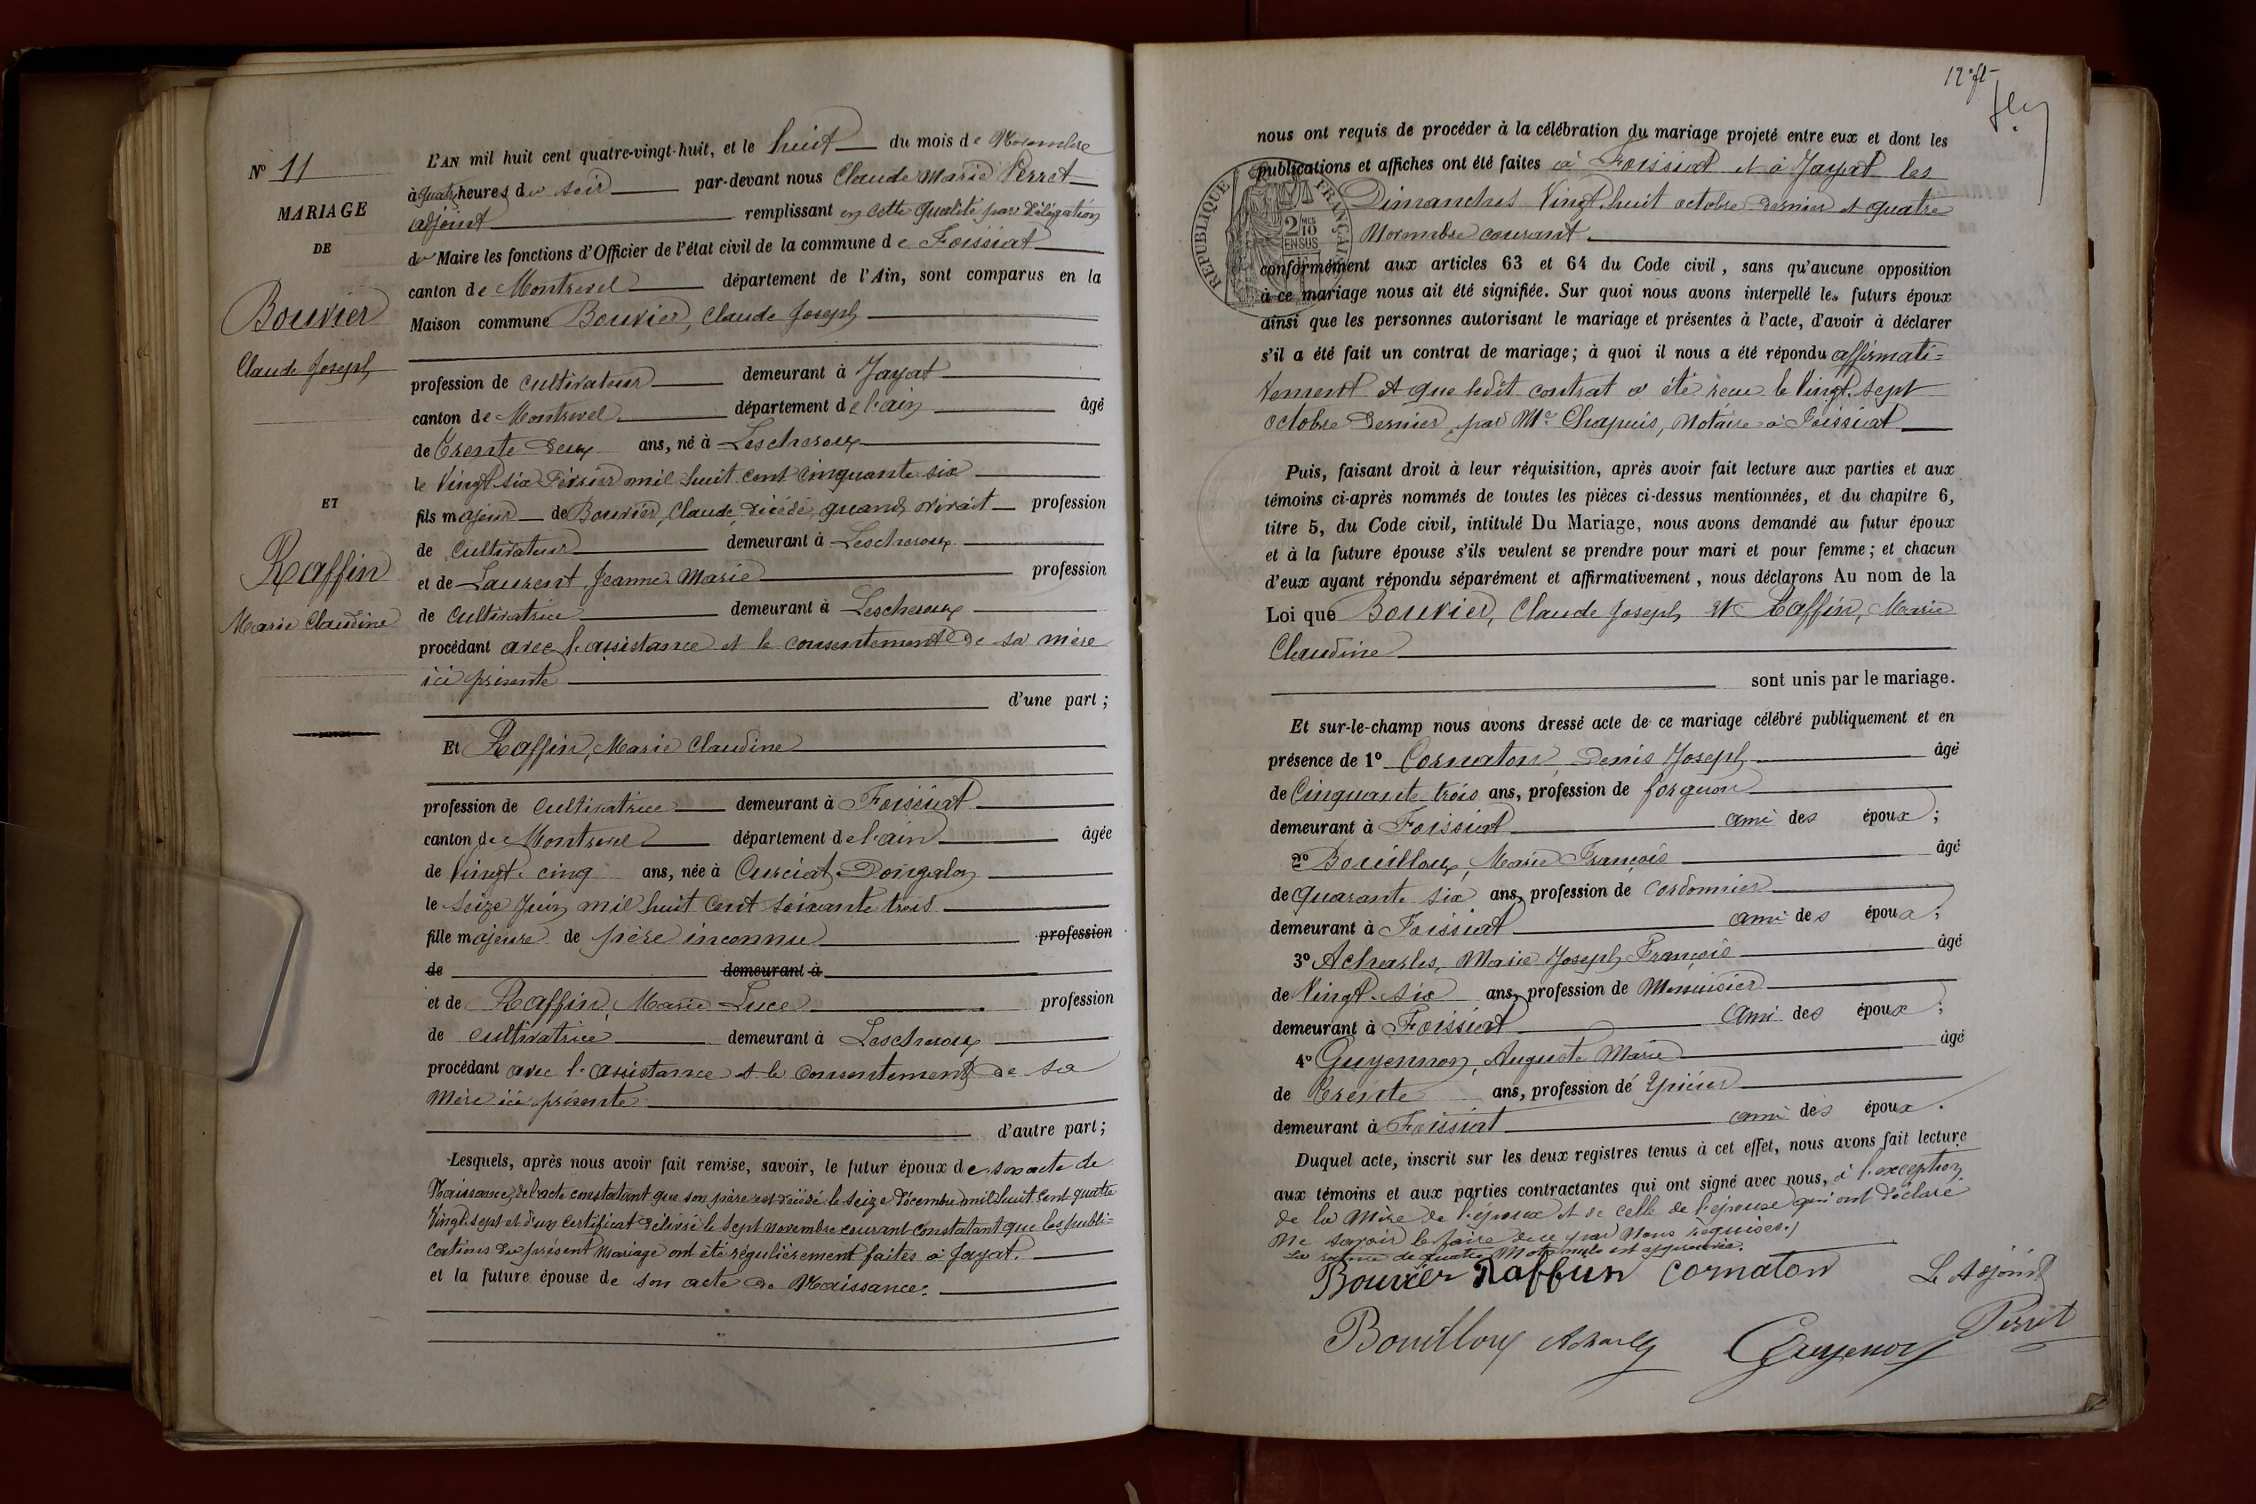 N° 11
MARIAGE
DE
Bouvier
Claude Joseph
ET
Raffin
Marie Claudine
L'AN mil huit cent quatre-vingt-huit, et le huit du mois de Novembre
à quatre heures du soir par-devant nous Claude Marie Perret
adjoint remplissant en cette qualité par délégation
du Maire les fonctions d'Officier de l'état civil de la commune de Foissiat
canton de Montrevel département de l'Ain, sont comparus en la
Maison commune Bouvier, Claude Joseph
profession de cultivateur demeurant à Jayat
canton de Montrevel département de l'ain âgé
de Trente deux ans, né à Lescheroux
le vingt six Février mil huit cent cinquante six
fils majeur de Bouvier, Claude, décédé, quand vivait profession
de cultivateur demeurant à Lescheroux
et de Laurent, Jeanne Marie profession
de cultivatrice demeurant à Lescheroux
procédant avec l'assistance et le consentement de sa mère
ici présente
d'une part ;
Et Raffin, Marie Claudine
profession de cultivatrice demeurant à Foissiat
canton de Montrevel département de l'ain âgée
de vingt-cinq ans, née à Curciat-Dongalon
le seize Juin mil huit cent soixante trois
fille majeure de père inconnu profession
de demeurant à
et de Raffin, Marie Luce profession
de cultivatrice demeurant à Lescheroux
procédant avec l'assistance et le consentement de sa
mère ici présente
d'autre part ;
Lesquels, après nous avoir fait remise, savoir, le futur époux de son acte de
Naissance, de l'acte constatant que son père est décédé le seize décembre mil huit cent quatre
vingt-sept et d'un certificat délivré le sept novembre courant constatant que les publi-
cations du présent mariage ont été régulièrement faites à Jayat.
et la future épouse de son acte de Naissance.
12e ft
nous ont requis de procéder à la célébration du mariage projeté entre eux et dont les
publications et affiches ont été faites à Foissiat et à Jayat les
Dimanches Vingt-huit octobre dernier et quatre
Novembre courant.
RÉPUBLIQUE FRANÇAISE
2 MES 10
EN SUS
conformément aux articles 63 et 64 du Code civil, sans qu'aucune opposition
à ce mariage nous ait été signifiée. Sur quoi nous avons interpellé les futurs époux
ainsi que les personnes autorisant le mariage et présentes à l'acte, d'avoir à déclarer
s'il a été fait un contrat de mariage ; à quoi il nous a été répondu affirmati=
vement et que ledit contrat a été reçu le vingt-sept
octobre dernier, par Me Chapuis, Notaire à Foissiat
Puis, faisant droit à leur réquisition, après avoir fait lecture aux parties et aux
témoins ci-après nommés de toutes les pièces ci-dessus mentionnées, et du chapitre 6,
titre 5, du Code civil, intitulé Du Mariage, nous avons demandé au futur époux
et à la future épouse s'ils veulent se prendre pour mari et pour femme ; et chacun
d'eux ayant répondu séparément et affirmativement, nous déclarons Au nom de la
Loi que Bouvier, Claude Joseph et Raffin, Marie
Claudine
sont unis par le mariage.
Et sur-le-champ nous avons dressé acte de ce mariage célébré publiquement et en
présence de 1° Cornaton, Denis Joseph âgé
de Cinquante trois ans, profession de forgeron
demeurant à Foissiat ami des époux ;
2° Bouilloux, Marie François âgé
de quarante six ans, profession de cordonnier
demeurant à Foissiat ami des époux ;
3° Acharles, Marie Joseph François âgé
de Vingt-six ans, profession de Menuisier
demeurant à Foissiat ami des époux ;
4° Guyennon, Auguste Marie âgé
de Trente ans, profession de Épicier
demeurant à Foissiat ami des époux.
Duquel acte, inscrit sur les deux registres tenus à cet effet, nous avons fait lecture
aux témoins et aux parties contractantes qui ont signé avec nous, à l'exception
de la mère de l'époux et de celle de l'épouse qui ont déclaré
ne savoir le faire de ce par Nous requises.
La rature de quatre Mots nuls est approuvée.
Bouvier Raffin Cornaton Le Adjoint
Bouilloux Acharles Guyenon Perret